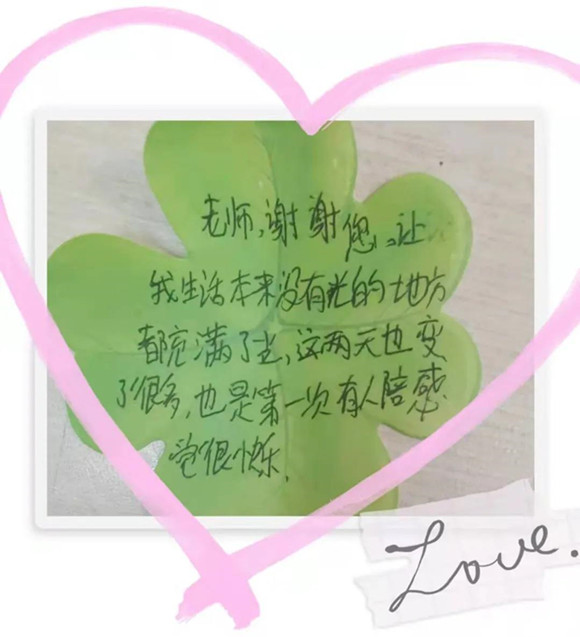 老师,谢谢您,让
我生活本来没有光的地方
都充满了光,这两天也变
了很多,也是第一次有人陪感
觉很快乐.
Love.